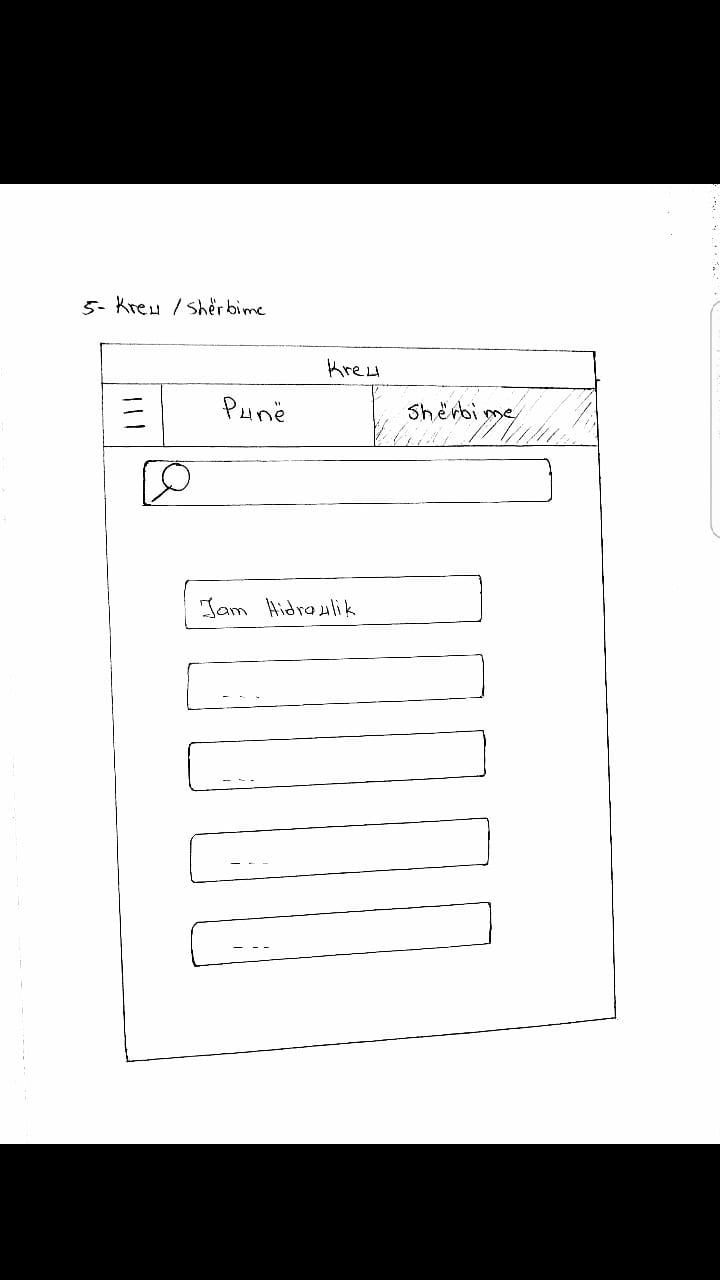 5- Kreu / Shërbime
Kreu
Punë
Shërbime
Jam Hidraulik
---
---
---
---